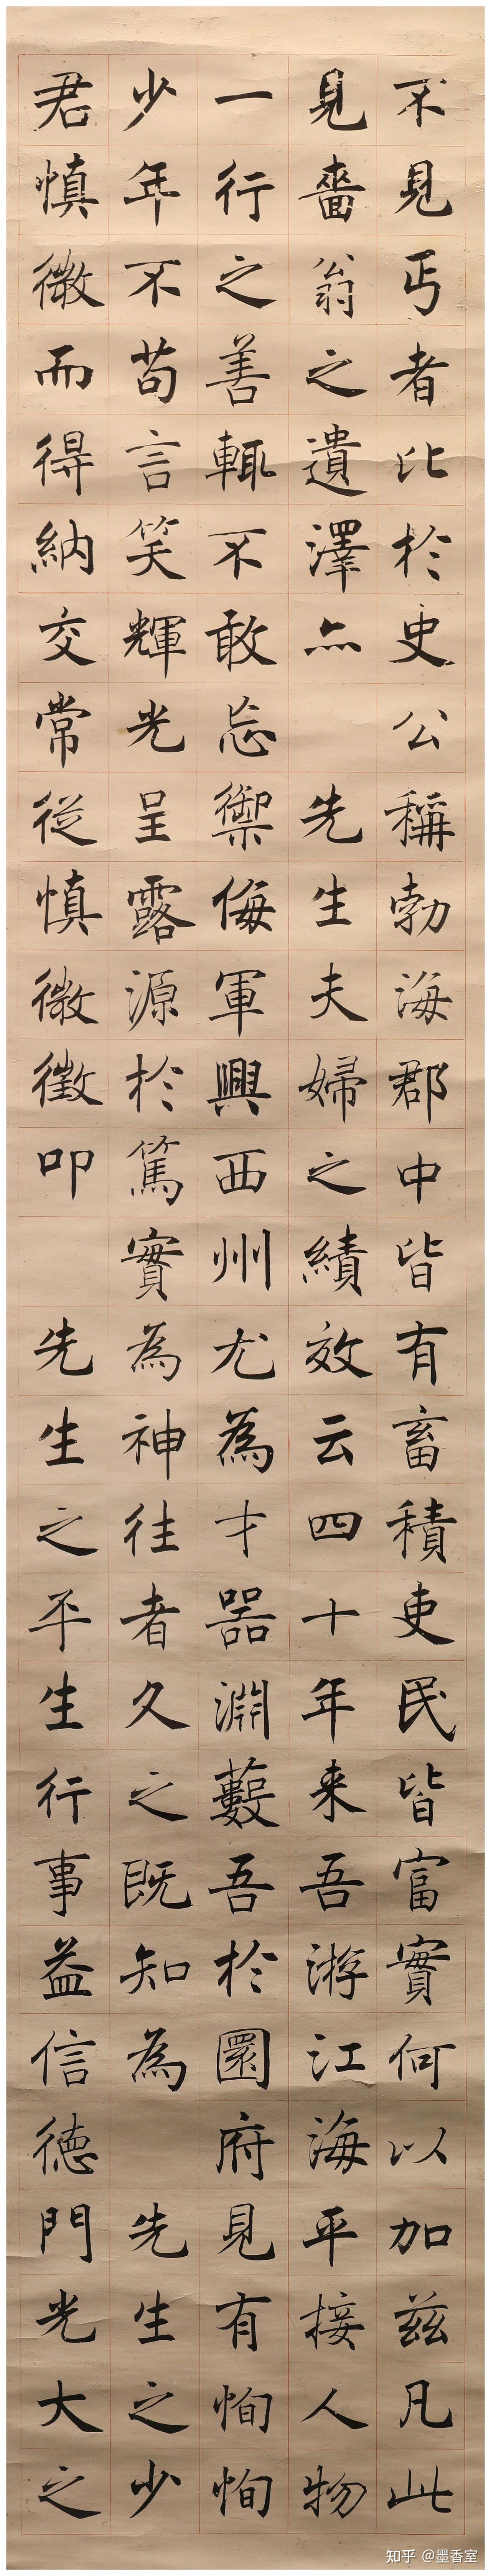 不見丐者比於史公稱勃海郡中皆有畜積吏民皆富實何以加茲凡此
見嗇翁之遺澤亦先生夫婦之績效云四十年来吾游江海平接人物
一行之善輒不敢忘禦侮軍興西州尤為才器淵藪吾於圜府見有恂恂
少年不苟言笑輝光呈露源於篤實為神往者久之既知為先生之少
君慎微而得納交常從慎微徵叩先生之平生行事益信德門光大之
知乎 @墨香室